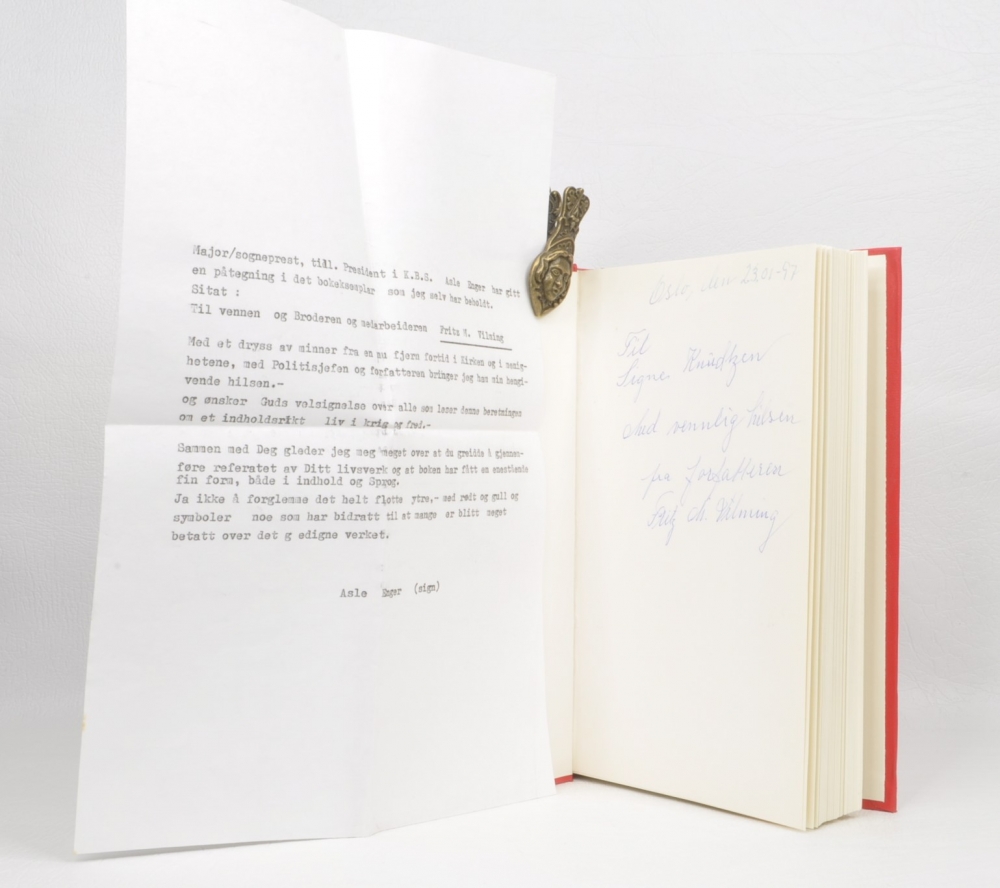 Major/sogneprest, till. President i K.B.S. Asle Enger har gitt
en påtegning i det bokeksemplar som jeg selv har beholdt.
Sitat :
Til vennen og Broderen og medarbeideren Fritz M. Vilming
Med et dryss av minner fra en nu fjern fortid i Kirken og i menig-
hetene, med Politisjefen og forfatteren bringer jeg han min hengi-
vende hilsen.-
og ønsker Guds velsignelse over alle som leser denne beretningen
om et indholdsrikt liv i krig og fred.-
Sammen med Deg gleder jeg meg meget over at du greidde å gjennem-
føre referatet av Ditt livsverk og at boken har fått en enestående
fin form, både i indhold og Sprog.
Ja ikke å forglemme det helt flotte ytre,- med rødt og gull og
symboler noe som har bidratt til at mange er blitt meget
betatt over det g edigne verket.
Asle Enger (sign)
Oslo, den
Til
Signe Knudtzen
Med vennlig hilsen
fra forfatteren
Fritz M. Vilming